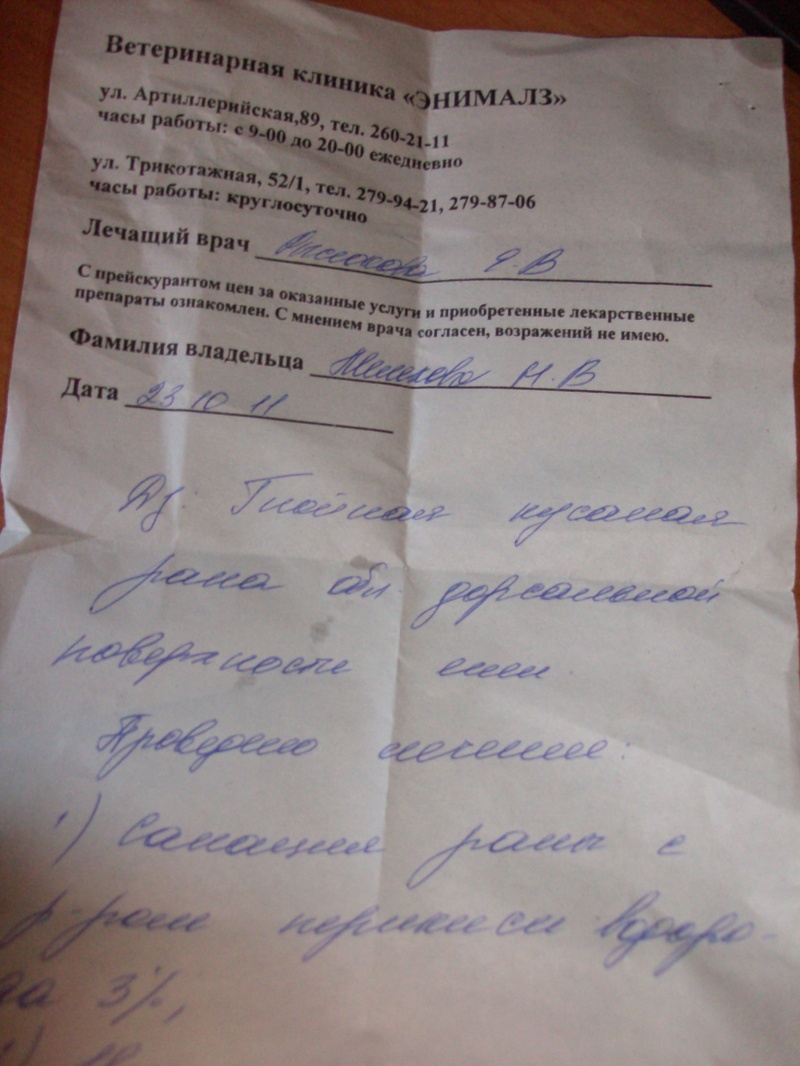 Ветеринарная клиника «ЭНИМАЛЗ»
ул. Артиллерийская,89, тел. 260-21-11
часы работы: с 9-00 до 20-00 ежедневно
ул. Трикотажная, 52/1, тел. 279-94-21, 279-87-06
часы работы: круглосуточно
Лечащий врач
С прейскурантом цен за оказанные услуги и приобретенные лекарственные
препараты ознакомлен. С мнением врача согласен, возражений не имею.
Фамилия владельца Н.В
Дата 23 10 11
Dz. Гнойная кусаная
рана обл. дорсальной
поверхности шеи
Проведено лечение:
1) Санация раны с
р-ром перекиси водоро-
да 3%,